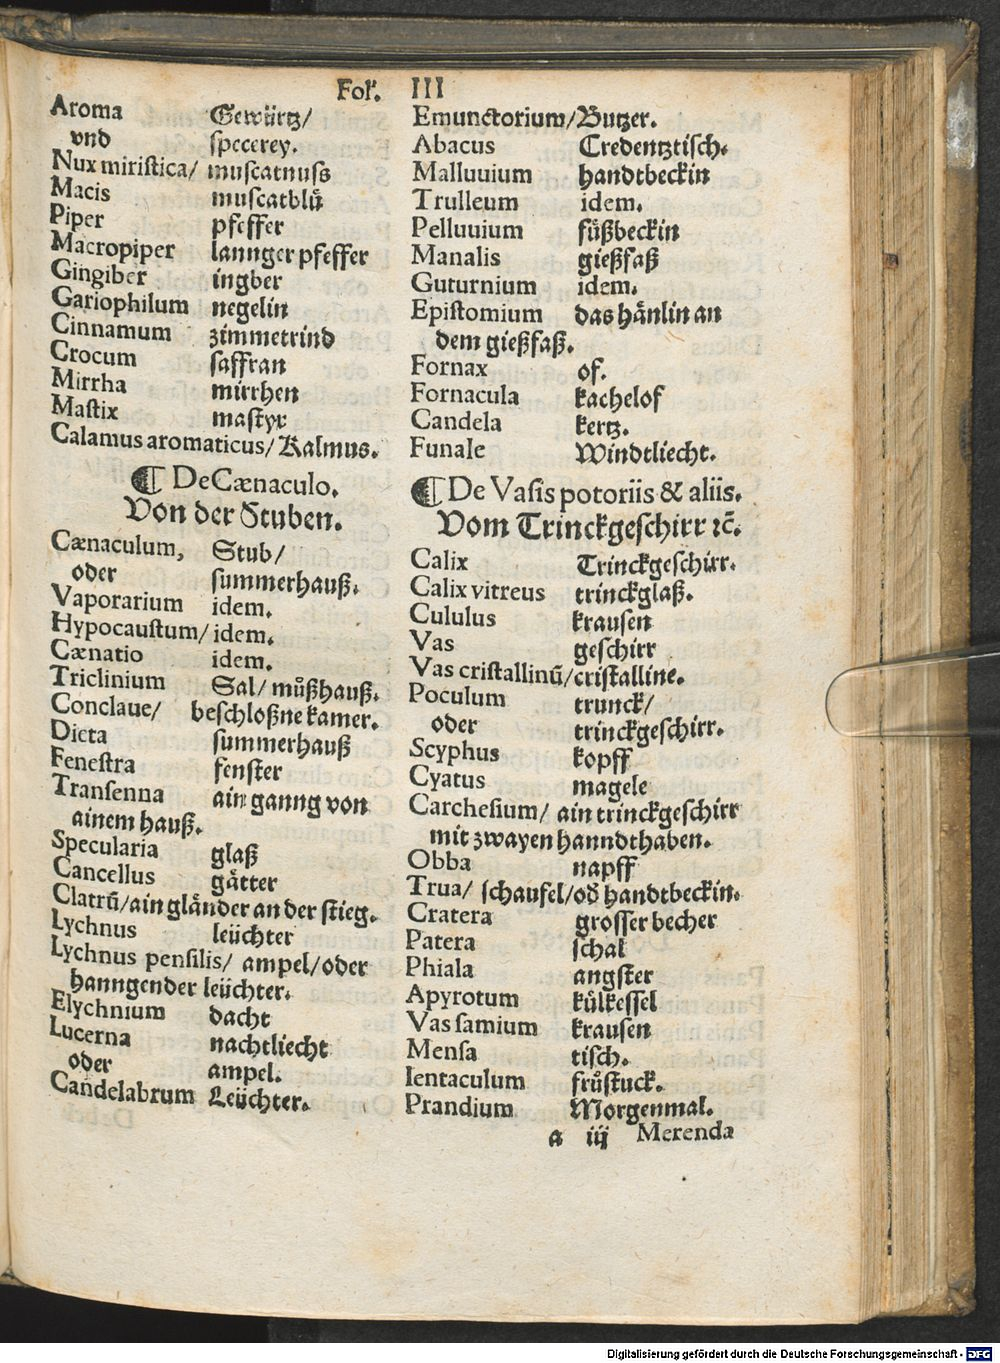 Fol. III
Aroma Gewürtz/
vnd specerey.
Nux miristica/ muscatnuss
Macis muscatblů
Piper pfeffer
Macropiper lannger pfeffer
Gingiber ingber
Gariophilum negelin
Cinnamum zimmetrind
Crocum saffran
Mirrha mirrhen
Mastix mastyx
Calamus aromaticus/ Kalmus.
¶ De Cænaculo.
Von der Stuben.
Cænaculum, Stub/
oder summerhauß.
Vaporarium idem.
Hypocaustum/ idem.
Cænatio idem.
Triclinium Sal/ můßhauß.
Conclaue/ beschloßne kamer.
Dieta summerhauß
Fenestra fenster
Transenna ain ganng von
ainem hauß.
Specularia glaß
Cancellus gätter
Clatrũ/ ain gländer an der stieg.
Lychnus leüchter
Lychnus pensilis/ ampel/ oder
hanngender leüchter.
Elychnium dacht
Lucerna nachtliecht
oder ampel.
Candelabrum Leüchter.
Emunctorium/ Butzer.
Abacus Credentztisch.
Malluuium handtbeckin
Trulleum idem.
Pelluuium fůßbeckin
Manalis gießfaß
Guturnium idem.
Epistomium das hänlin an
dem gießfaß.
Fornax of.
Fornacula kachelof
Candela kertz.
Funale Windtliecht.
¶ De Vasis potoriis & aliis.
Vom Trinckgeschirr ꝛc̃.
Calix Trinckgeschirr.
Calix vitreus trinckglaß.
Cululus krausen
Vas geschirr
Vas cristallinũ/ cristalline.
Poculum trunck/
oder trinckgeschirr.
Scyphus kopff
Cyatus magele
Carchesium/ ain trinckgeschirr
mit zwayen hanndthaben.
Obba napff
Trua/ schaufel/ oď handtbeckin.
Cratera grosser becher
Patera schal
Phiala angster
Apyrotum külkessel
Vas samium krausen
Mensa tisch.
Ientaculum frůstuck.
Prandium Morgenmal.
a iij Merenda
Digitalisierung gefördert durch die Deutsche Forschungsgemeinschaft - DFG